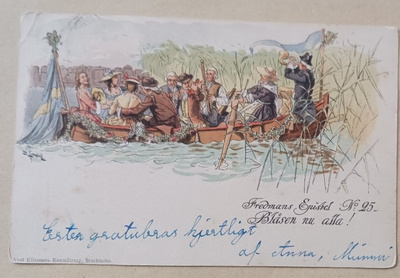 Fredmans Epistel No 25.
Blåsen nu alla!
Ester gratuleras hjertligt
af Anna, Mimmi
Axel Eliassons Konstförlag, Stockholm.